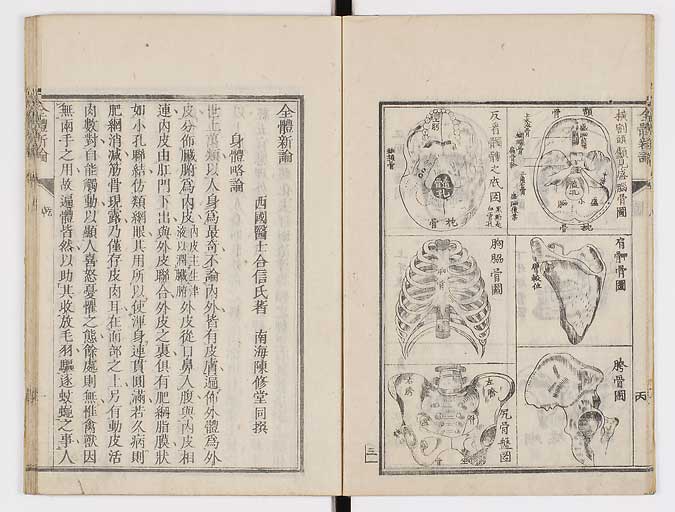 全體新論
丙
橫割頭顱見底腦骨圖
顱
骨
枕
骨
肩胛骨圖
胯骨圖
反看髑髏之底圖
上牙床骨
骨 枕
胸脇骨圖
尻骨盤圖
三
全體新論
西國醫士合信氏著 南海陳修堂同撰
身體略論
世上萬類以人身為最奇不論內外皆有皮膚遍佈外體為外
皮分佈臟腑為內皮內皮主生津液以潤臟腑外皮從口鼻入腹與內皮相
連內皮由肛門下出與外皮聯合外皮之裏俱有肥網脂膜狀
如小孔聯結仿類網眼其用所以使渾身連貫圓滿若久病則
肥網消減筋骨現露乃僅存皮肉耳在面部之上另有動皮活
肉數對自能觸動以顯人喜怒憂懼之態餘處則無惟禽獸因
無兩手之用故遍體皆然以助其收放毛羽驅逐蚊蠅之事人
全體新論
乾
一